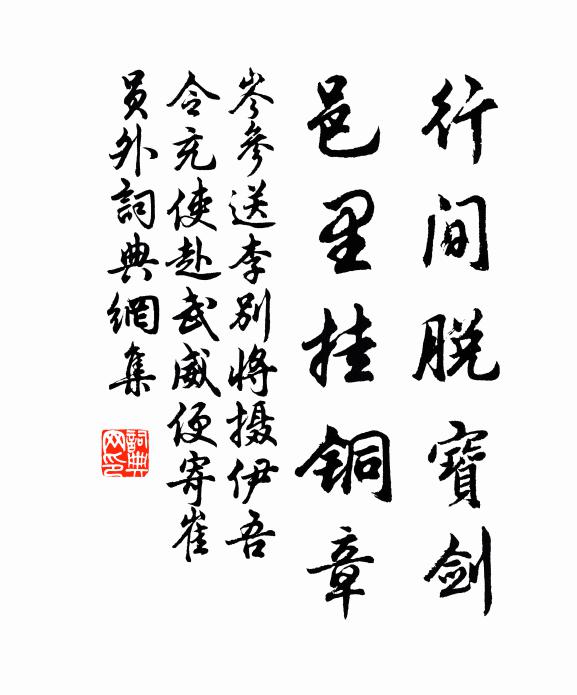 行间脱寶劍
邑里挂铜章
岑參送李别將摄伊吾
令充使赴武威便寄崔
員外詞典網集
詞典
网印